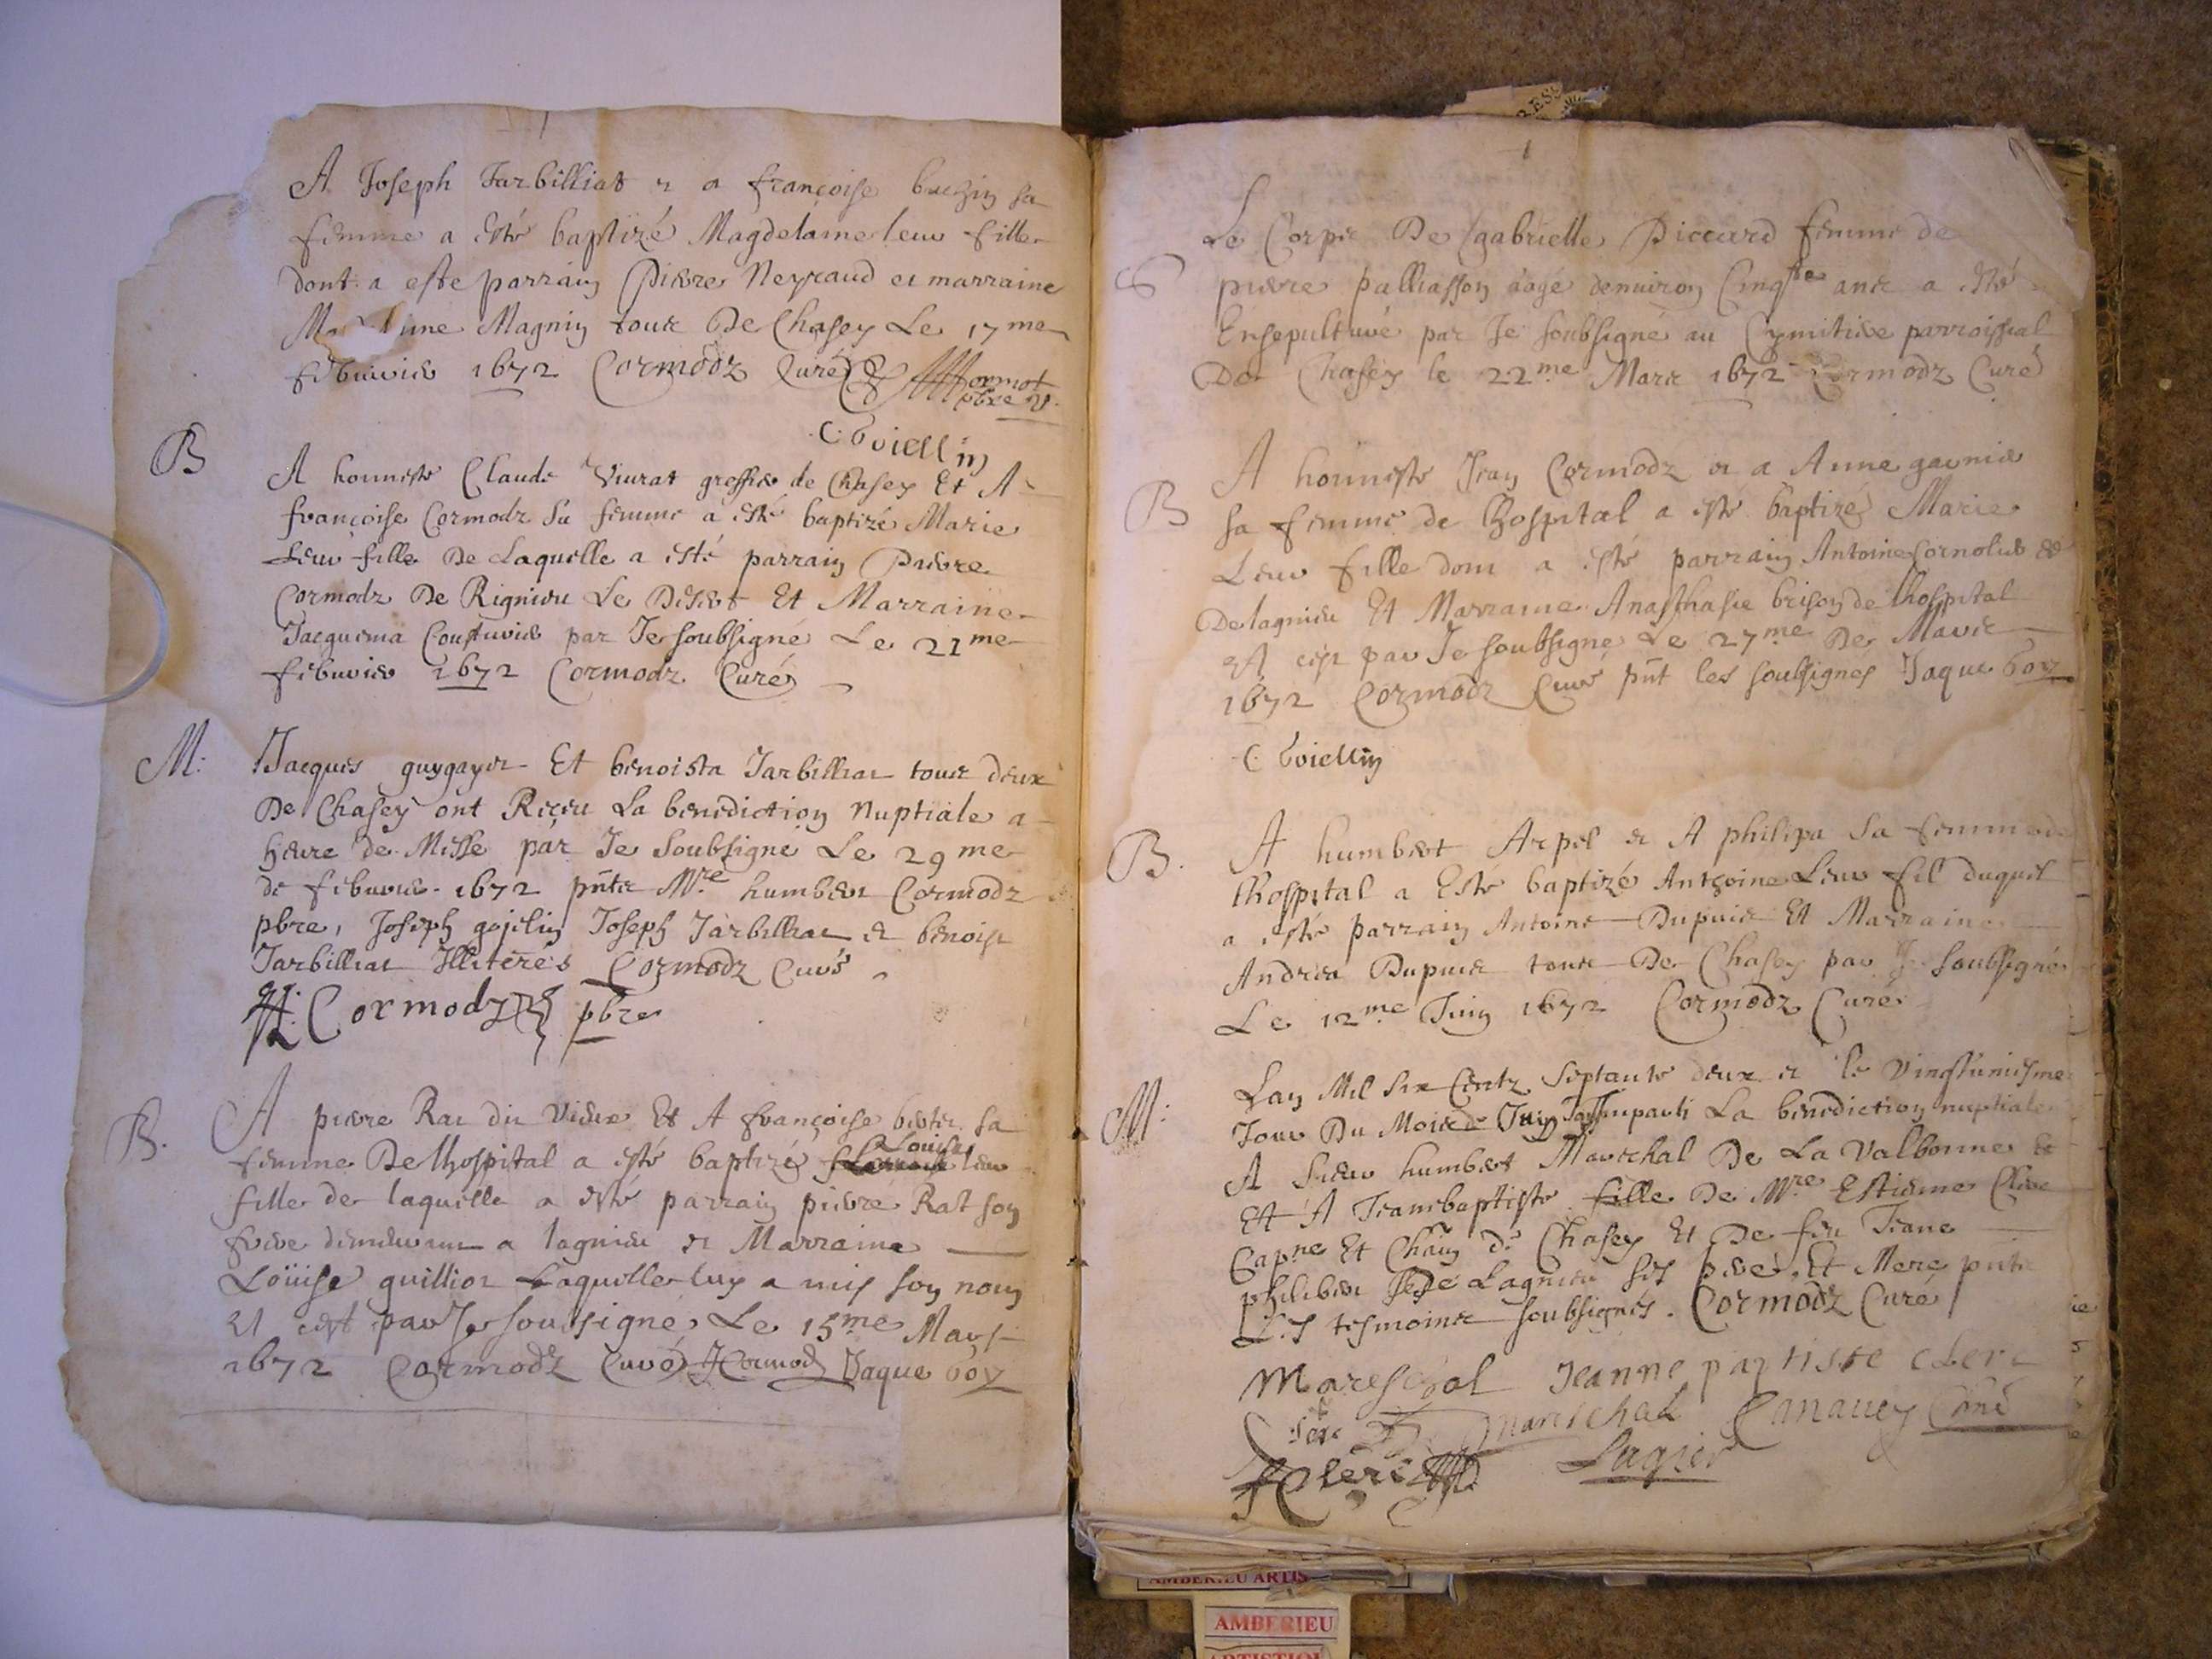 A Joseph Jarbilliat et a françoise buezin sa
femme a esté baptizé Magdelaine leur fille
dont a este parrain Pierre Neyraud et marraine
Magnin tous De Chasey Le 17me
febvrier 1672 Cormodz Curé
pbre V.
C. Coiellin
B
A honneste Claude Viurat greffier de Chasey Et A
françoise Cormodz sa femme a esté baptizé Marie
Leur fille De Laquelle a esté parrain Pierre
Cormodz De Rignieu Le Desert Et Marraine
Jaquema Cousturier par Je soubsigné Le 21me
febvrier 1672 Cormodz Curé
M:
Jacques guygayor Et benoista Jarbilliat tous deux
De Chasey ont Reçeu La benediction Nuptiale a
heure de Messe par Je Soubsigné Le 29me
de febvrier 1672 pnts Mre humbert Cormodz
pbre, Joseph gojelin Joseph Jarbilliat et benoist
Jarbilliat Illiterés Cormodz Curé
H. Cormodz pbre
B.
A pierre Rat dit Vieux Et A françoise sa
Louise
femme De lhospital a esté baptizé leur
fille de laquelle a esté parrain pierre Rat son
frere demeurant a lagnieu et Marraine
Loüise quilliot Laquelle luy a mis son nom
Et cest par Je soubsigné Le 15me Mars
1672 Cormodz Curé H Cormodz Jaque boy
S
Le Corps De gabrielle Piccard femme de
pierre palliasson aagé denviron Cinqte ans a esté
Ensepulturé par Je soubsigné au Cymitiere parroissial
De Chasey le 22me Mars 1672 Cormodz Curé
B
A honneste Jean Cormodz et a Anne garnier
sa femme de lhospital a esté baptizé Marie
Leur fille dont a esté parrain Antoine Cornolier
De lagnieu Et Marraine Anasthasie brison de lhospital
Et cest par Je soubsigné Le 27me De Mars
1672 Cormodz Curé pnt les soubsignes Jaque boy
C. Coiellin
B.
A humbert Arpel et A philipa Sa femme de
lhospital a Esté baptizé Antçoine Leur fil duquel
a esté parrain Antoine Dupuis Et Marraine
Andrea Dupuis tous De Chasey par Je Soubsigné
Le 12me Juin 1672 Cormodz Curé
M:
Lan Mil Six Centz Septante deux et le Vingtuniesme
Jour Du Mois de Juin Jay Imparti La benediction nuptiale
A Sieur humbert Mareschal De La Valbonne Et
Et A Jeanbaptiste fille De Mre Estienne Clerc
Capne Et Chãn de Chasey Et De feu Jeane
philibert De Lagnieu ses pere Et Mere pnts
Les tesmoins soubsignés. Cormodz Curé
Mareschal Jeanne paptiste clerc
mareschal
Clerc Lagier
AMBERIEU ARTIS
AMBERIEU